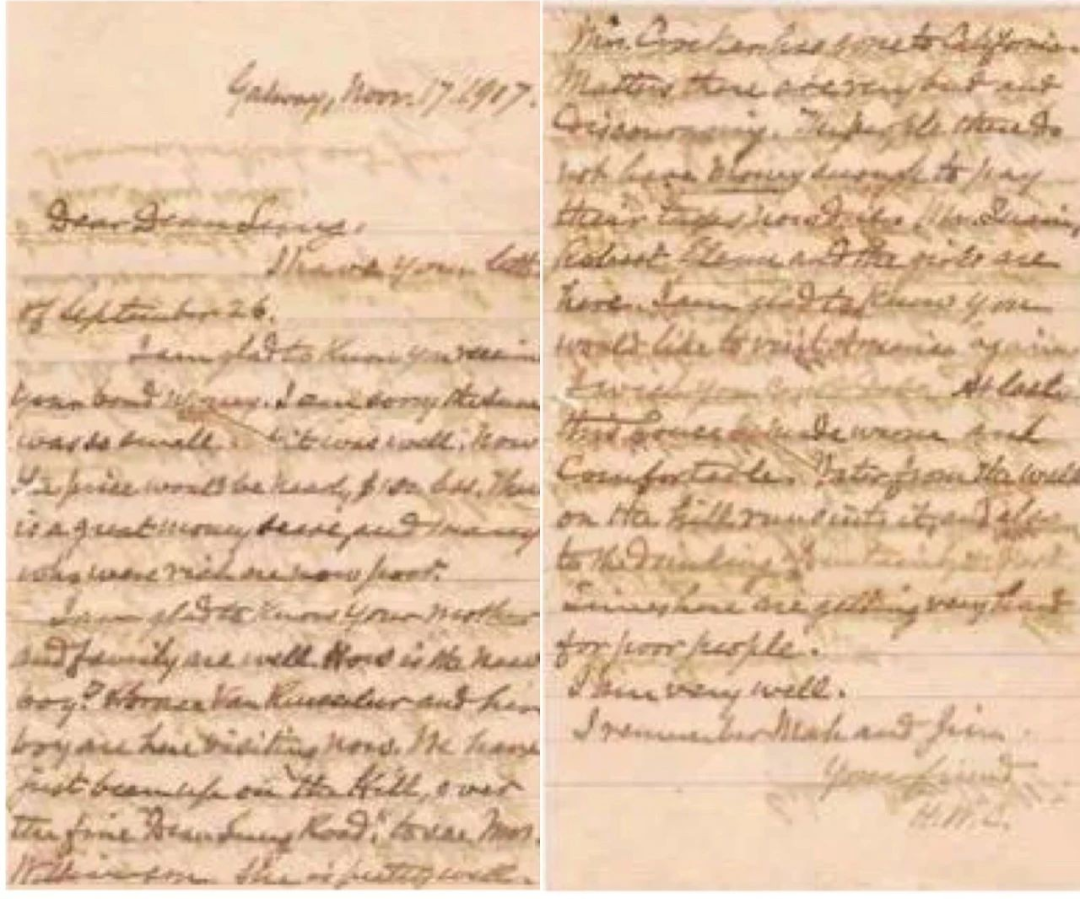 Galway, Nov. 17. 1907.
Dear Dean Sing,
I have your
of September 26.
I am glad to know you
your bond money. I am sorry the sum
was so small. it was well. Now
price would be less. There
is a great money and many
who were rich are now poor.
I am glad to know your mother
and family are well. How is the new
boy? Horace Van and his
boy are here visiting now. We have
just been up on the Hill, over
the fine "Dean Sing Road," to see Mrs.
Wilkinson. She is pretty well.
Mrs. has gone to California.
Matters there are very bad and
discouraging. The people there do
not have money enough to pay
their now due. Mr.
and the girls are
here. I am glad to know you
would like to visit America again.
I wish you At last
this house is made warm and
comfortable. Water from the well
on the hill runs into it, and also
to the
Times here are getting very hard
for poor people.
I am very well.
I remember Mah and Jim.
Your friend
H.W.C.